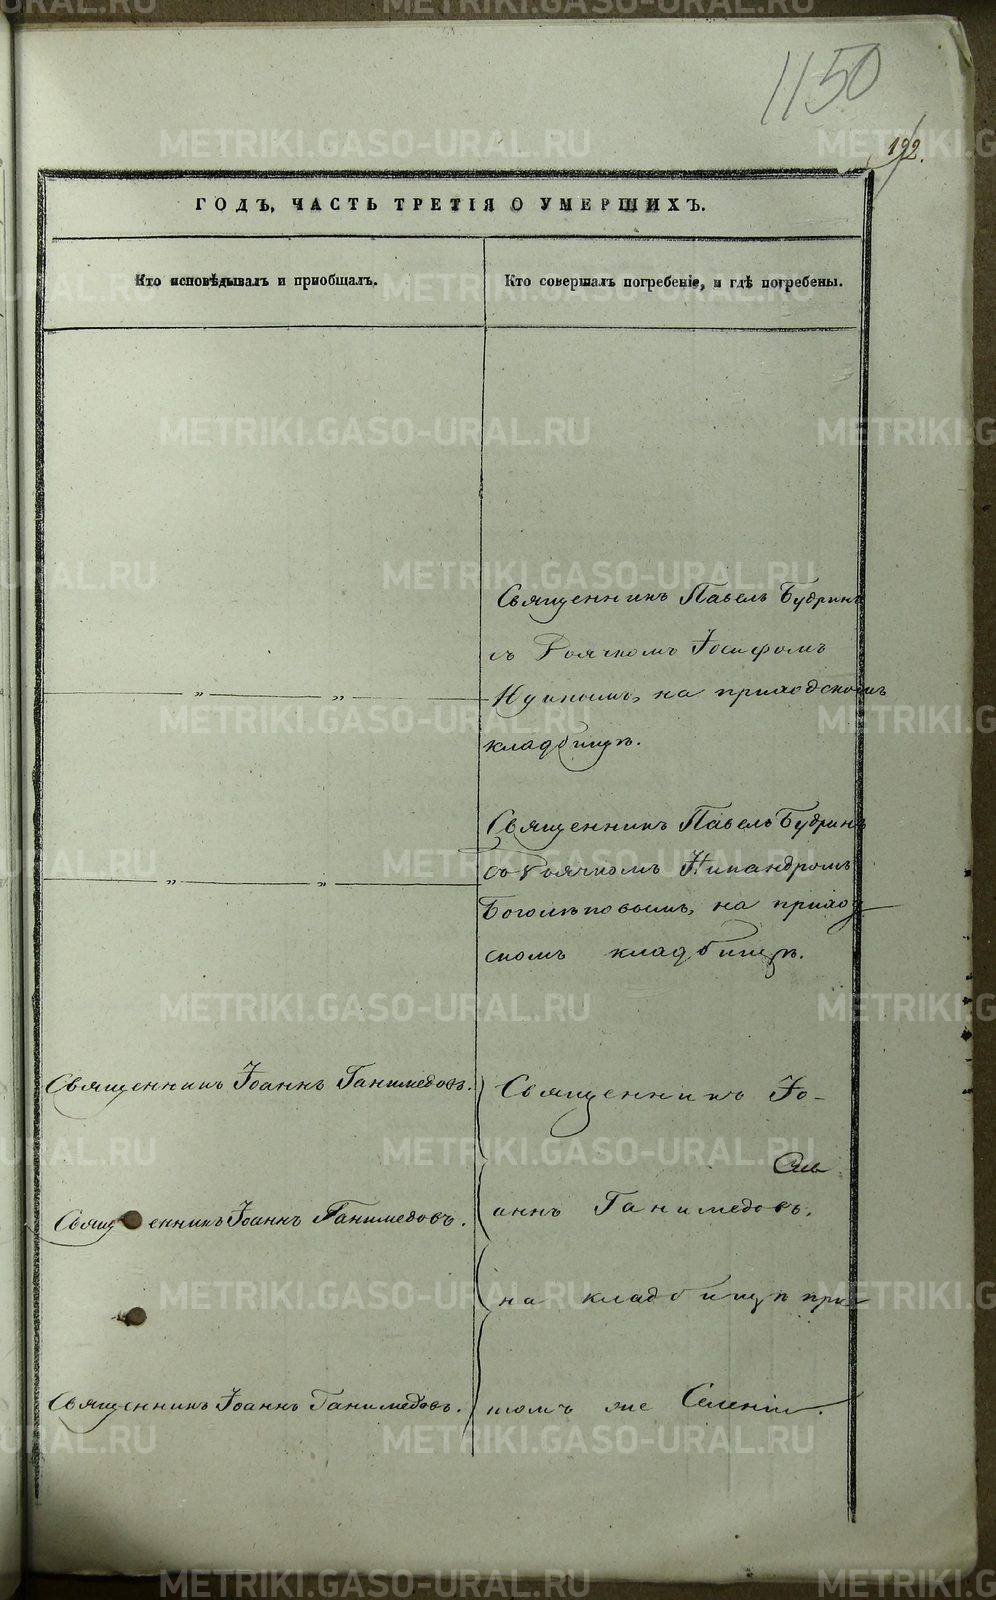 1150
192.
ГОДЪ, ЧАСТЬ ТРЕТІЯ О УМЕРШИХЪ.
Кто исповѣдывалъ и приобщалъ.
Кто совершалъ погребеніе, и гдѣ погребены.
Священникъ Павелъ Будринъ
съ Дьячкомъ Іосифомъ
на приходскомъ
кладбищѣ.
Священникъ Павелъ Будринъ
съ Дьячкомъ Никандромъ
Боголѣповымъ, на приход
скомъ кладбищѣ.
Священникъ Іоаннъ Ганимедовъ.
Священникъ Іоаннъ Ганимедовъ.
Священникъ Іоаннъ Ганимедовъ.
Священникъ Іо-
аннъ Ганимедовъ.
на кладбищѣ при
томъ же Селеніи.
METRIKI.GASO-URAL.RU